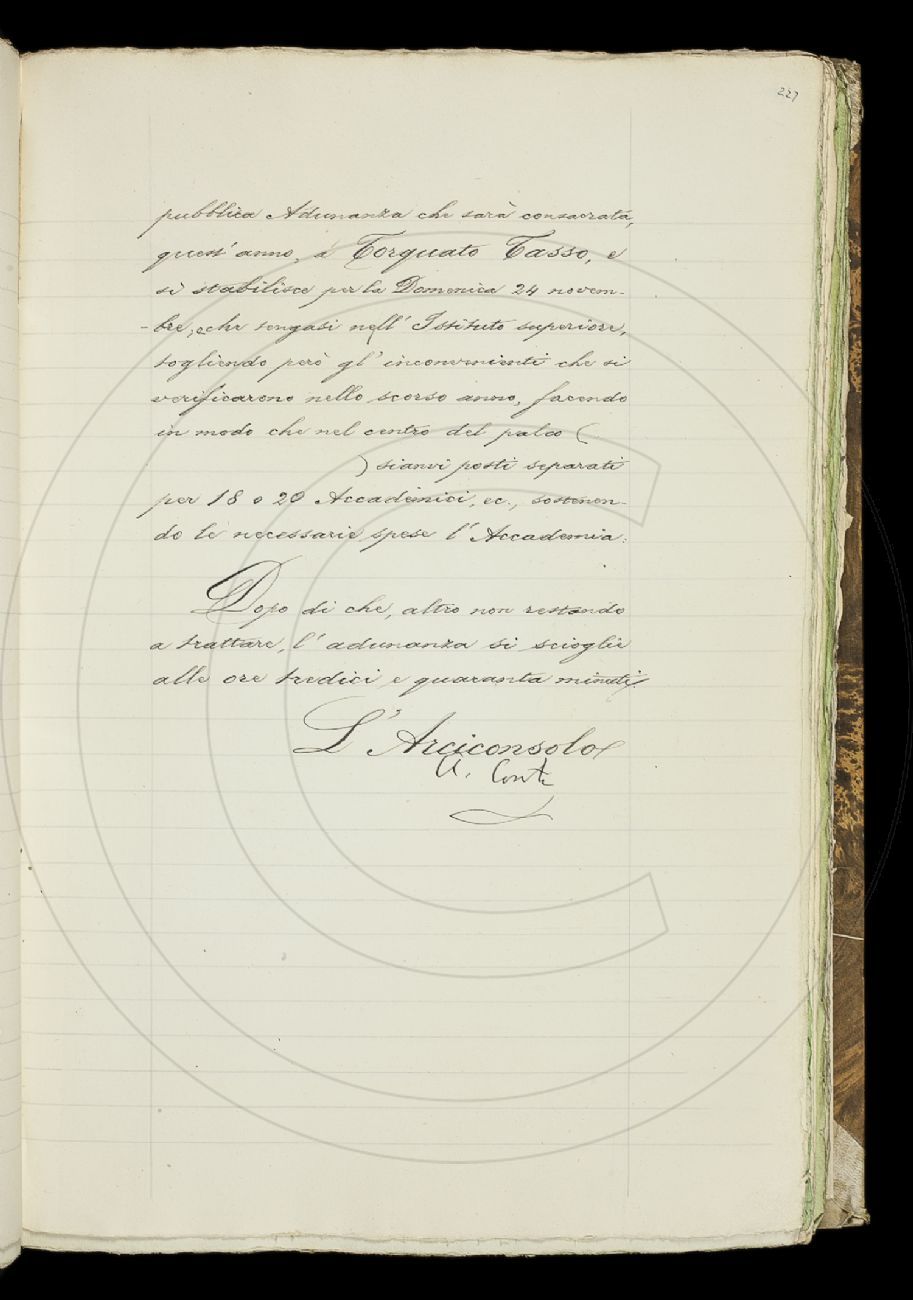 227
pubblica Adunanza che sarà consacrata,
quest' anno, a Torquato Tasso, e
si stabilisce per la Domenica 24 novem-
-bre, e che tengasi nell' Istituto superiore,
togliendo però gl' inconvenienti che si
verificarono nello scorso anno, facendo
in modo che nel centro del palco (
) sianvi posti separati
per 18 o 20 Accademici, ec., sostenen-
do le necessarie spese l' Accademia.
Dopo di che, altro non restando
a trattare, l' adunanza si scioglie
alle ore tredici e quaranta minuti.
L' Arciconsolo
A. Conti